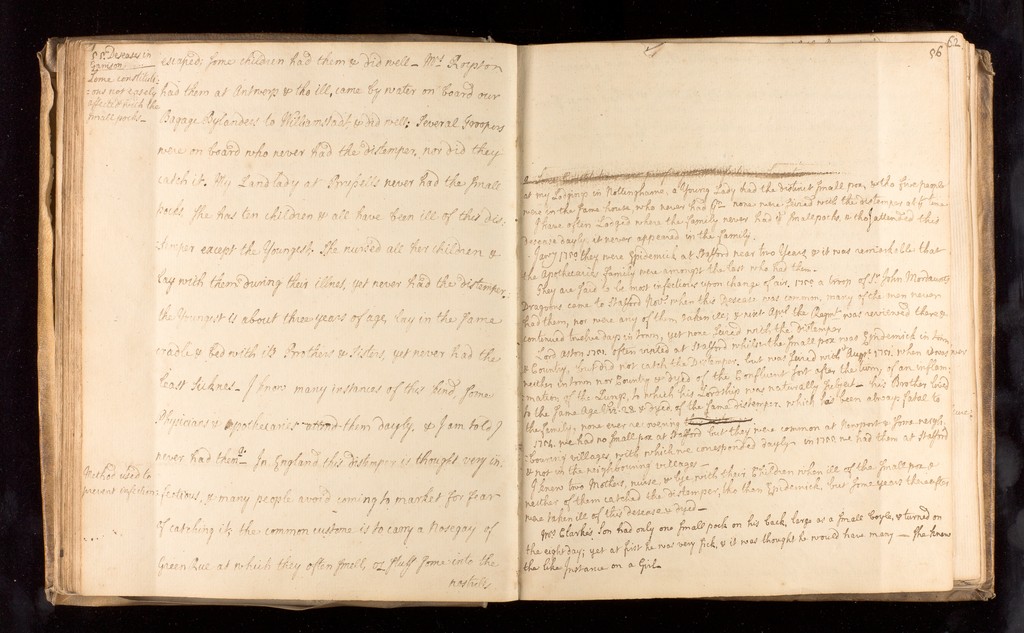 ps: Deseases in
Garrison.
Some constituti:
:ons not easely
affected with the
small pocks_
escaped; some children had them & did well _ Mrs. Roypton
had them at Antwerp & tho ill, came by water on board our
Bagage Bylanders to Williamstadt & did well; Several Troopers
were on board who never had the distemper, nor did they
catch it. My Landlady at Brussells never had the small
pocks. She has ten children & all have been ill of this dis:
:temper except the Youngest. She nursed all her children &
lay with them during their illnes, yet never had the distemper,
the Youngest is about three years of age, lay in the same
cradle & bed with its Brothers & Sisters, yet never had the
least sicknes _ I know many instances of this kind, some
Physicians & Apothecaries attend them dayly, & I am told
never had them _ In England this distemper is thought very in:
Method used to
prevent infection:
:fectious, & many people avoid coming to market for fear
of catching it; the common custome is to carry a Nosegay of
Green Rue at which they often smell, or stuff some into the
nostrills.
62
56
at my Lodgings in Nottinghame, a Young Lady had the distinct small pox, & tho four people
were in the same house who never had it none were seized with the distemper at that time
I have often Lodged where the family never had the smallpocks, & tho I attended that
desease dayly, it never appeared in the family.
they were Epidemick at Stafford near two Years, & it was remarkable that
the Apothecaries family were amongst the last who had them.
They are said to be most infectious upon change of air. 1750 a troop of Sr. John Mordaunts
Dragoons came to Stafford Novr. when this desease was common, many of the men never
had them, nor were any of them taken ill; & next April the Regmt. was reviewed there &
continued twelve days in town, yet none seized with the distemper
Lord Aston 1751 often visited at Stafford whilst the small pox was Epidemick in town,
& Country, but did not catch the Distemper. but was seized with Augst. 1751. when it was
neither in town nor Country & dyed of the Confluent sort after the turn, of an inflam:
:mation of the Lungs, to which his Lordship was naturally subject _ his Brother lived
to the same Age Viz. 28 & dyed of the same distemper. which has been always fatal to
the family, none ever recovering
1754. we had no small pox at Stafford but they were common at Newport & some neigh:
:bouring villages, with which we corresponded dayly _ in 1755 we had them at Stafford
& not in the neighbouring villages _
I knew two Mothers, nurse, & lye with their Children when ill of the small pox &
neither of them catched the distemper, tho then Epidemick, but some years thereafter
were taken ill of this desease & dyed _
Mrs Clarke's son had only one small pock on his back, large as a small Boyle, & turned on
the eight day; yet at first he was very sick, & it was thought he would have many _ She knew
the like Instance on a Girl_